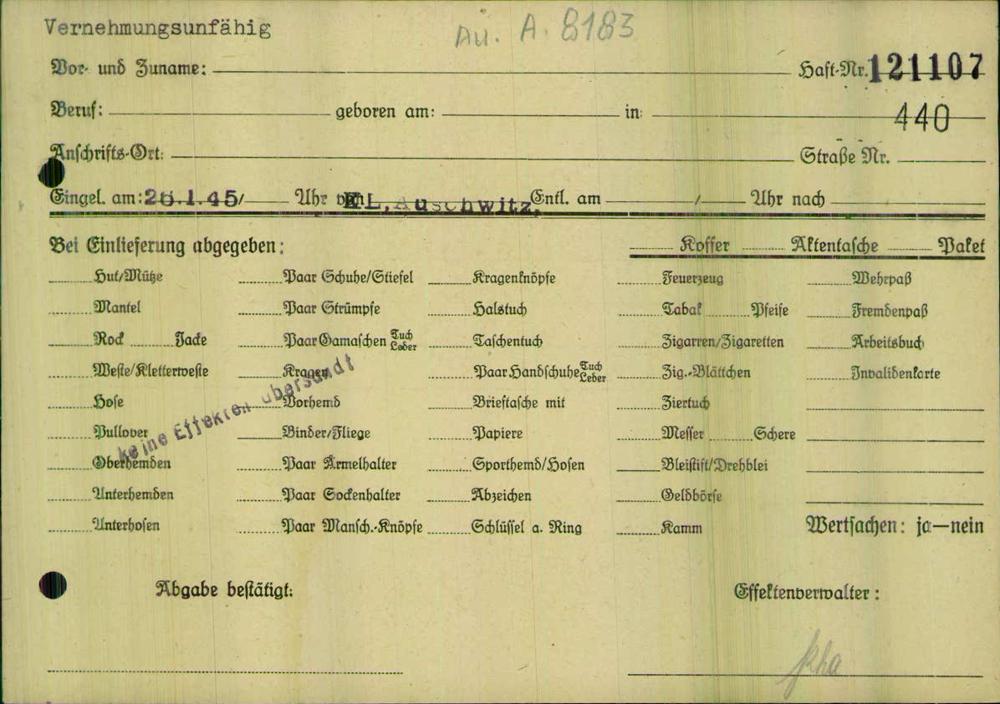 Vernehmungsunfähig
Au. A. 8183
Vor- und Zuname: Haft-Nr. 121107
Beruf: geboren am: in: 440
Anschrifts-Ort: Straße Nr.
Eingel. am: 26.1.45/ Uhr von KL, Auschwitz, Entl. am / Uhr nach
Bei Einlieferung abgegeben: Koffer Aktentasche Paket
Hut/Mütze Paar Schuhe/Stiefel Kragenknöpfe Feuerzeug Wehrpaß
Mantel Paar Strümpfe Halstuch Tabak Pfeife Fremdenpaß
Rock Jacke Paar Gamaschen Tuch Leder Taschentuch Zigarren/Zigaretten Arbeitsbuch
Weste/Kletterweste Kragen Paar Handschuhe Tuch Leder Zig.-Blättchen Invalidenkarte
Hose Vorhemd Brieftasche mit Ziertuch
Pullover Binder/Fliege Papiere Messer Schere
Oberhemden Paar Ärmelhalter Sporthemd/Hosen Bleistift/Drehblei
Unterhemden Paar Sockenhalter Abzeichen Geldbörse
Unterhosen Paar Mansch.-Knöpfe Schlüssel a. Ring Kamm Wertsachen: ja—nein
keine Effekten übersandt
Abgabe bestätigt: Effektenverwalter: